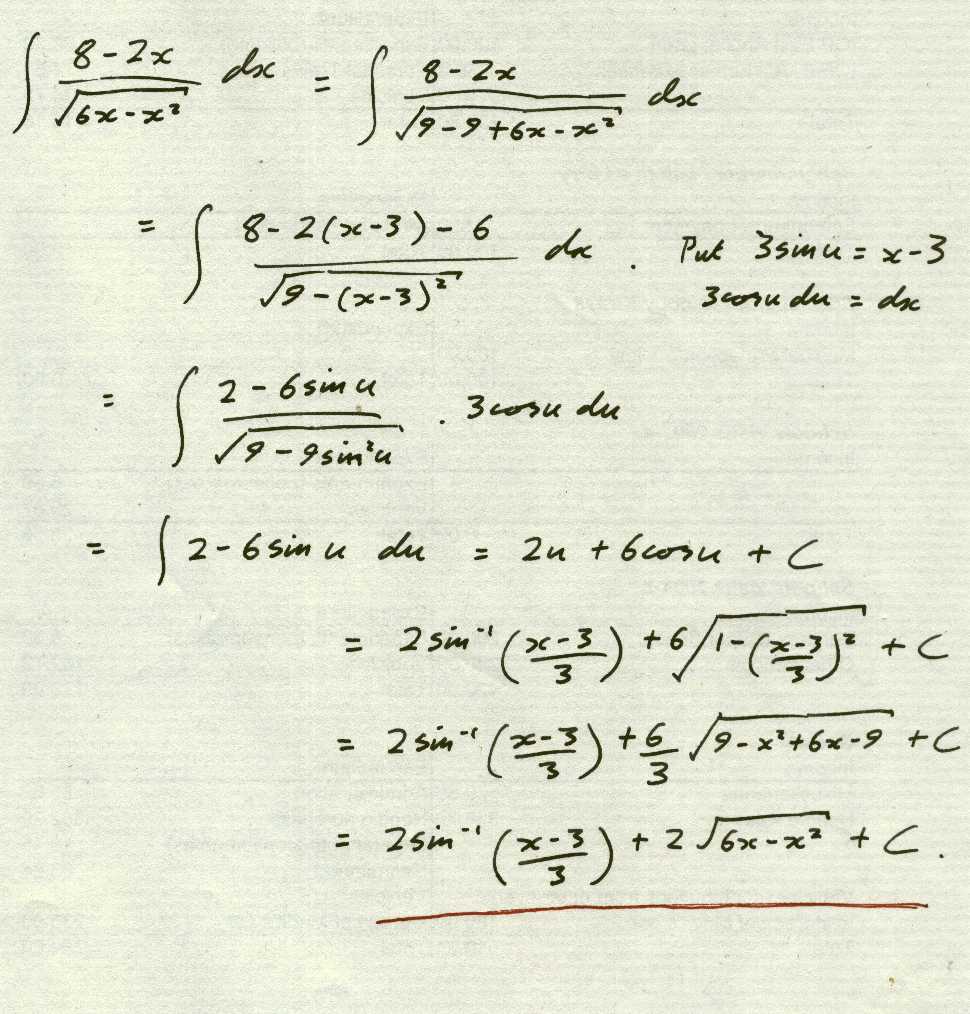 ∫ (8-2x)/√(6x-x²) dx = ∫ (8-2x)/√(9-9+6x-x²) dx
= ∫ (8-2(x-3)-6)/√(9-(x-3)²) dx . Put 3sinu = x-3
3cosu du = dx
= ∫ (2-6sinu)/√(9-9sin²u) . 3cosu du
= ∫ 2-6sinu du = 2u + 6cosu + C
= 2sin⁻¹((x-3)/3) + 6√(1-((x-3)/3)²) + C
= 2sin⁻¹((x-3)/3) + 6/3 √(9-x²+6x-9) + C
= 2sin⁻¹((x-3)/3) + 2√(6x-x²) + C.